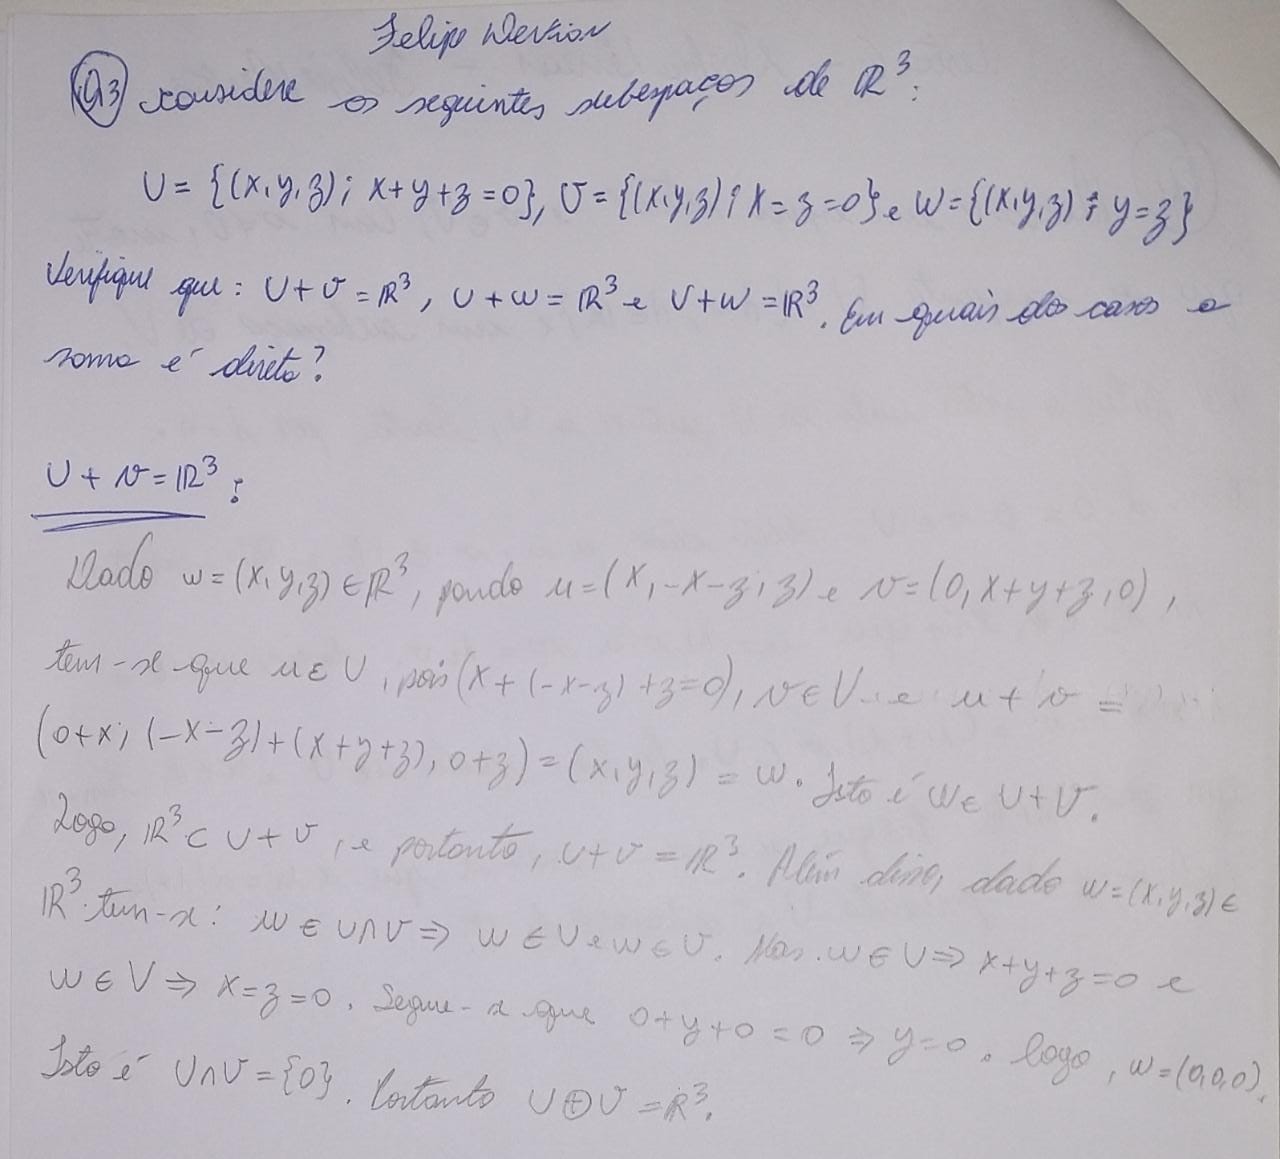 Felipe
Q3 considere os seguintes subespaços de ℝ³:
U = {(x,y,z); x+y+z=0}, V = {(x,y,z); x=z=0} e W={(x,y,z); y=z}
Verifique que: U+V=ℝ³, U+W=ℝ³ e V+W=ℝ³. Em quais dos casos a
soma é direta?
U+V=ℝ³:
Dado w=(x,y,z)∈ℝ³, pondo u=(x,-x-z,z) e v=(0,x+y+z,0),
tem-se que u∈U, pois (x+(-x-z)+z=0), v∈V e u+v=
(0+x, (-x-z)+(x+y+z), 0+z)=(x,y,z)=w. Isto é w∈U+V.
Logo, ℝ³⊂U+V, e portanto, U+V=ℝ³. Além disso, dado w=(x,y,z)∈
ℝ³ tem-se: w∈U∩V⇒ w∈U e w∈V. Mas w∈U⇒ x+y+z=0 e
w∈V⇒ x=z=0. Segue-se que 0+y+0=0⇒y=0. logo, w=(0,0,0).
Isto é U∩V={0}. Portanto U⊕V=ℝ³.